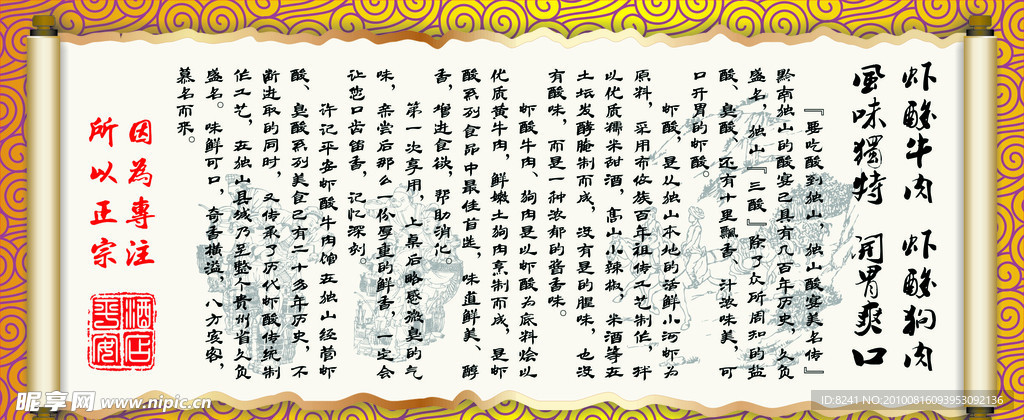 虾酸牛肉 虾酸狗肉
風味獨特 開胃爽口
『要吃酸到独山，独山酸宴美名传』
黔南独山的酸宴已具有几百年历史，久负
盛名，独山『三酸』除了众所周知的盐
酸、臭酸、还有十里飘香、汁浓味美，可
口开胃的虾酸。
虾酸，是从独山本地的活鲜小河虾为
原料，采用布依族百年祖传工艺制作，拌
以优质糯米甜酒，高山小辣椒，米酒等在
土坛发酵腌制而成，没有是的腥味，也没
有酸味，而是一种浓郁的酱香味。
虾酸牛肉、狗肉是以虾酸为底料烩以
优质黄牛肉，鲜嫩土狗肉烹制而成，是虾
酸系列食品中最佳首选，味道鲜美、醇
香，增进食欲，帮助消化。
第一次享用，上桌后略感微臭的气
味，亲尝后那么一份厚重的鲜香，一定会
让您口齿留香，记忆深刻。
许记平安虾酸牛肉馆在独山经营虾
酸、臭酸系列美食已有二十多年历史，不
断进取的同时，又传承了历代虾酸传统制
作工艺，在独山县城乃至整个贵州省久负
盛名。味鲜可口，奇香横溢，八方宾客，
慕名而来。
因為專注
所以正宗
酒店
平安
昵享网 www.nipic.cn
ID:8241 NO:20100816093953092136